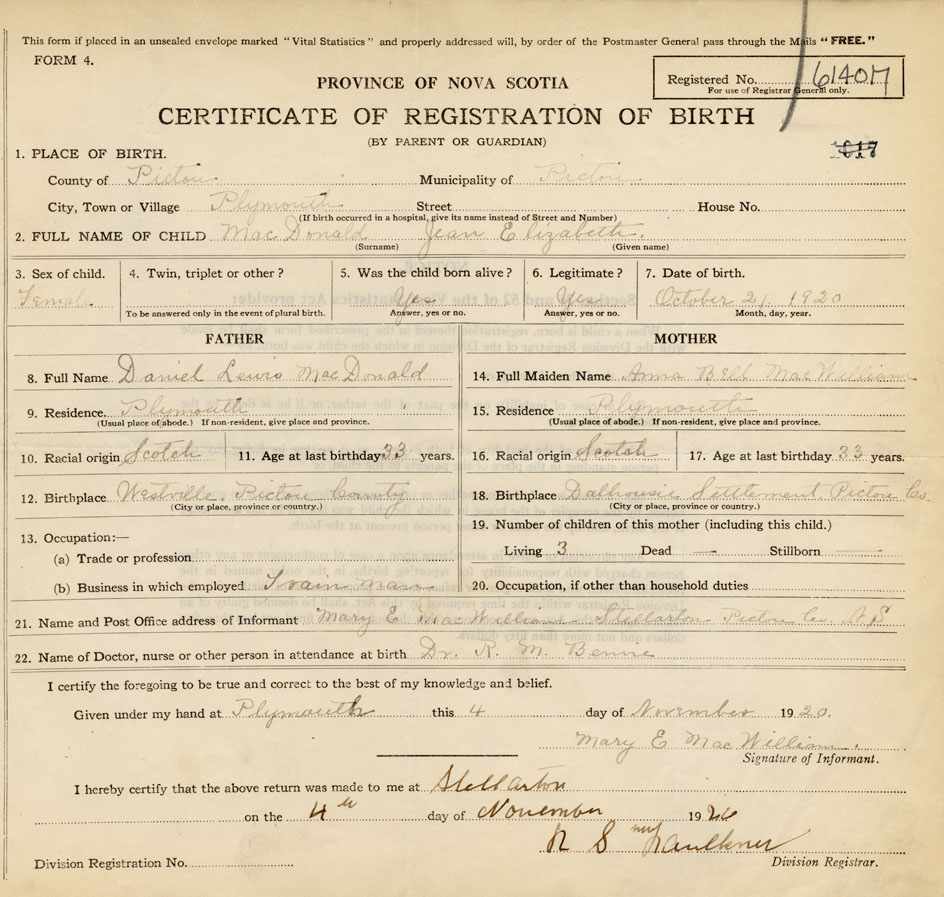 This form if placed in an unsealed envelope marked "Vital Statistics" and properly addressed will, by order of the Postmaster General pass through the Mails "FREE."
FORM 4.
PROVINCE OF NOVA SCOTIA
Registered No. 61401
For use of Registrar General only.
CERTIFICATE OF REGISTRATION OF BIRTH
(BY PARENT OR GUARDIAN)
1. PLACE OF BIRTH.
County of Pictou Municipality of Pictou
City, Town or Village Plymouth Street House No.
(If birth occurred in a hospital, give its name instead of Street and Number)
2. FULL NAME OF CHILD MacDonald Jean Elizabeth.
(Surname) (Given name)
3. Sex of child. 4. Twin, triplet or other? 5. Was the child born alive? 6. Legitimate? 7. Date of birth.
Female. Yes Yes October 21. 1920
To be answered only in the event of plural birth. Answer, yes or no. Answer, yes or no. Month, day, year.
FATHER MOTHER
8. Full Name Daniel Lewis MacDonald 14. Full Maiden Name Anna Bell MacWilliam
9. Residence. Plymouth 15. Residence Plymouth
(Usual place of abode.) If non-resident, give place and province. (Usual place of abode.) If non-resident, give place and province.
10. Racial origin Scotch 11. Age at last birthday 33 years. 16. Racial origin Scotch 17. Age at last birthday 33 years.
12. Birthplace Westville Pictou County 18. Birthplace Dalhousie Settlement Pictou Co.
(City or place, province or country.) (City or place, province or country.)
13. Occupation:— 19. Number of children of this mother (including this child.)
(a) Trade or profession Living 3 Dead — Stillborn —
(b) Business in which employed Train man 20. Occupation, if other than household duties
21. Name and Post Office address of Informant Mary E MacWilliam Stellarton Pictou Co. N S
22. Name of Doctor, nurse or other person in attendance at birth Dr. R. M. Benvie
I certify the foregoing to be true and correct to the best of my knowledge and belief.
Given under my hand at Plymouth this 4 day of November 1920.
Mary E MacWilliam.
Signature of Informant.
I hereby certify that the above return was made to me at Stellarton
on the 4th day of November 1920
R S McFaulkner
Division Registration No. Division Registrar.